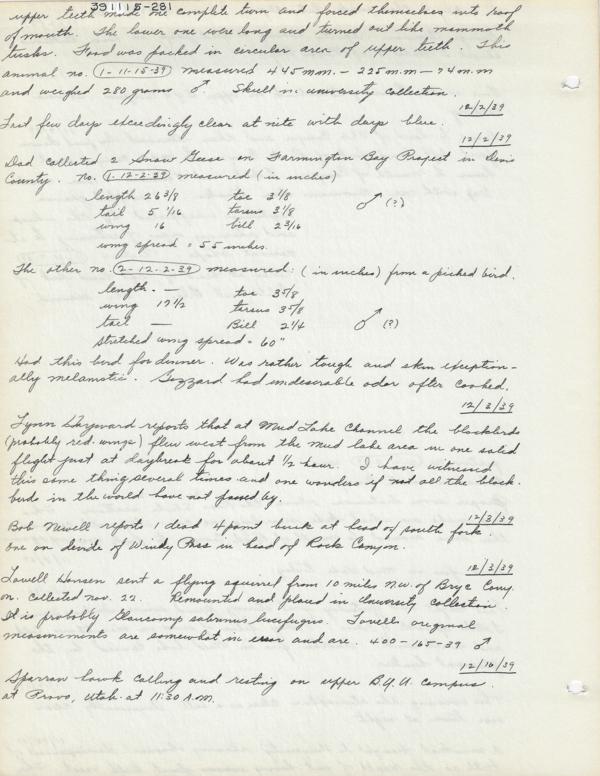 391115-281
upper teeth made one complete turn and forced themselves into roof
of mouth. The lower one were long and turned out like mammoth
tusks. Food was packed in circular area of upper teeth. This
animal no. 1-11-15-39 measured 445 mm. - 225 m.m - 74 m.m
and weighed 280 grams ♂. Skull in university collection.
12/2/39
Last few days exceedingly clear at nite with days blue.
12/2/39
Dad collected 2 Snow Geese on Farmington Bay Project in Davis
County. No. 1-12-2-39 measured (in inches)
length 26 3/8 toe 3 1/8
tail 5 1/16 tarsus 3 1/8 ♂ (?)
wing 16 bill 2 3/16
wing spread = 55 inches.
The other no. 2-12-2-39 measured: (in inches) from a picked bird.
length. — toe 3 5/8
wing 17 1/2 tarsus 3 5/8
tail — Bill 2 1/4 ♂ (?)
stretched wing spread = 60"
Had this bird for dinner. Was rather tough and skin exception-
ally melanotic. Gizzard had undesirable odor after cooked.
12/3/39
Lynn Hayward reports that at Mud Lake Channel the blackbirds
(probably red-wings) flew west from the mud lake area in one solid
flight just at daybreak for about 1/2 hour. I have witnessed
this same thing several times and one wonders if not all the black-
birds in the world have not passed by.
12/3/39
Bob Newell reports 1 dead 4 point buck at head of south fork.
One on divide of Windy Pass in head of Rock Canyon.
12/3/39
Lowell Hansen sent a flying squirrel from 10 miles N.W. of Bryce Cany-
on. Collected Nov. 22. Remounted and placed in University Collection.
It is probably Glaucomys sabrinus lucifugus. Lowells original
measurements are somewhat in error and are. 400-165-39 ♂
12/16/39
Sparrow hawk calling and resting on upper B.Y.U. campus
at Provo, Utah. at 11:30 A.M.